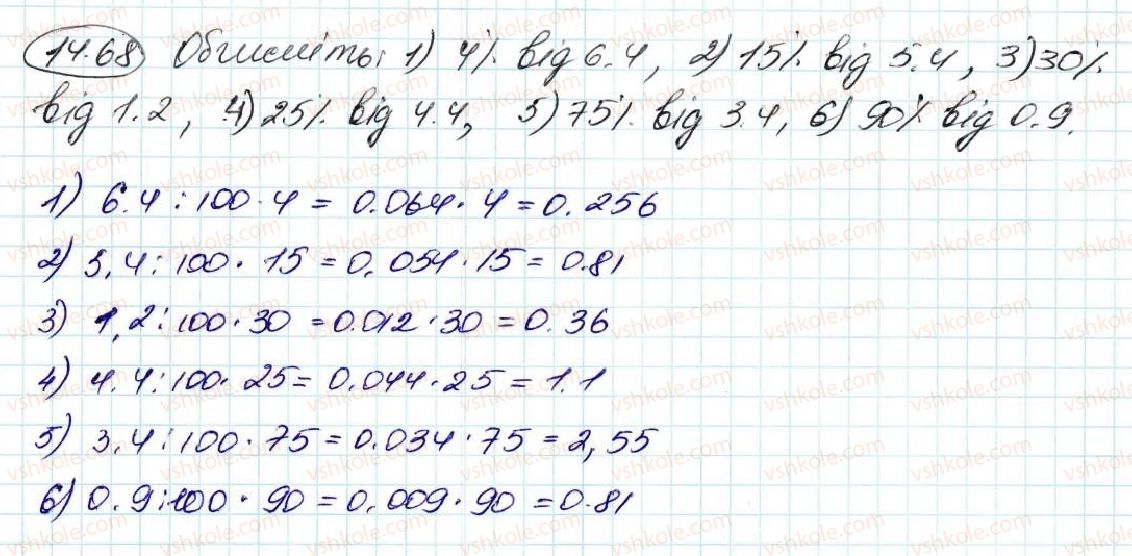 14.68 Обчисліть: 1) 4% від 6.4, 2) 15% від 5.4, 3) 30%
від 1.2, 4) 25% від 4.4, 5) 75% від 3.4, 6) 90% від 0.9.
1) 6.4 : 100 · 4 = 0.064 · 4 = 0.256
2) 5,4 : 100 · 15 = 0.054 · 15 = 0.81
3) 1,2 : 100 · 30 = 0.012 · 30 = 0.36
4) 4.4 : 100 · 25 = 0.044 · 25 = 1.1
5) 3.4 : 100 · 75 = 0.034 · 75 = 2,55
6) 0.9 : 100 · 90 = 0.009 · 90 = 0.81
vshkole.com